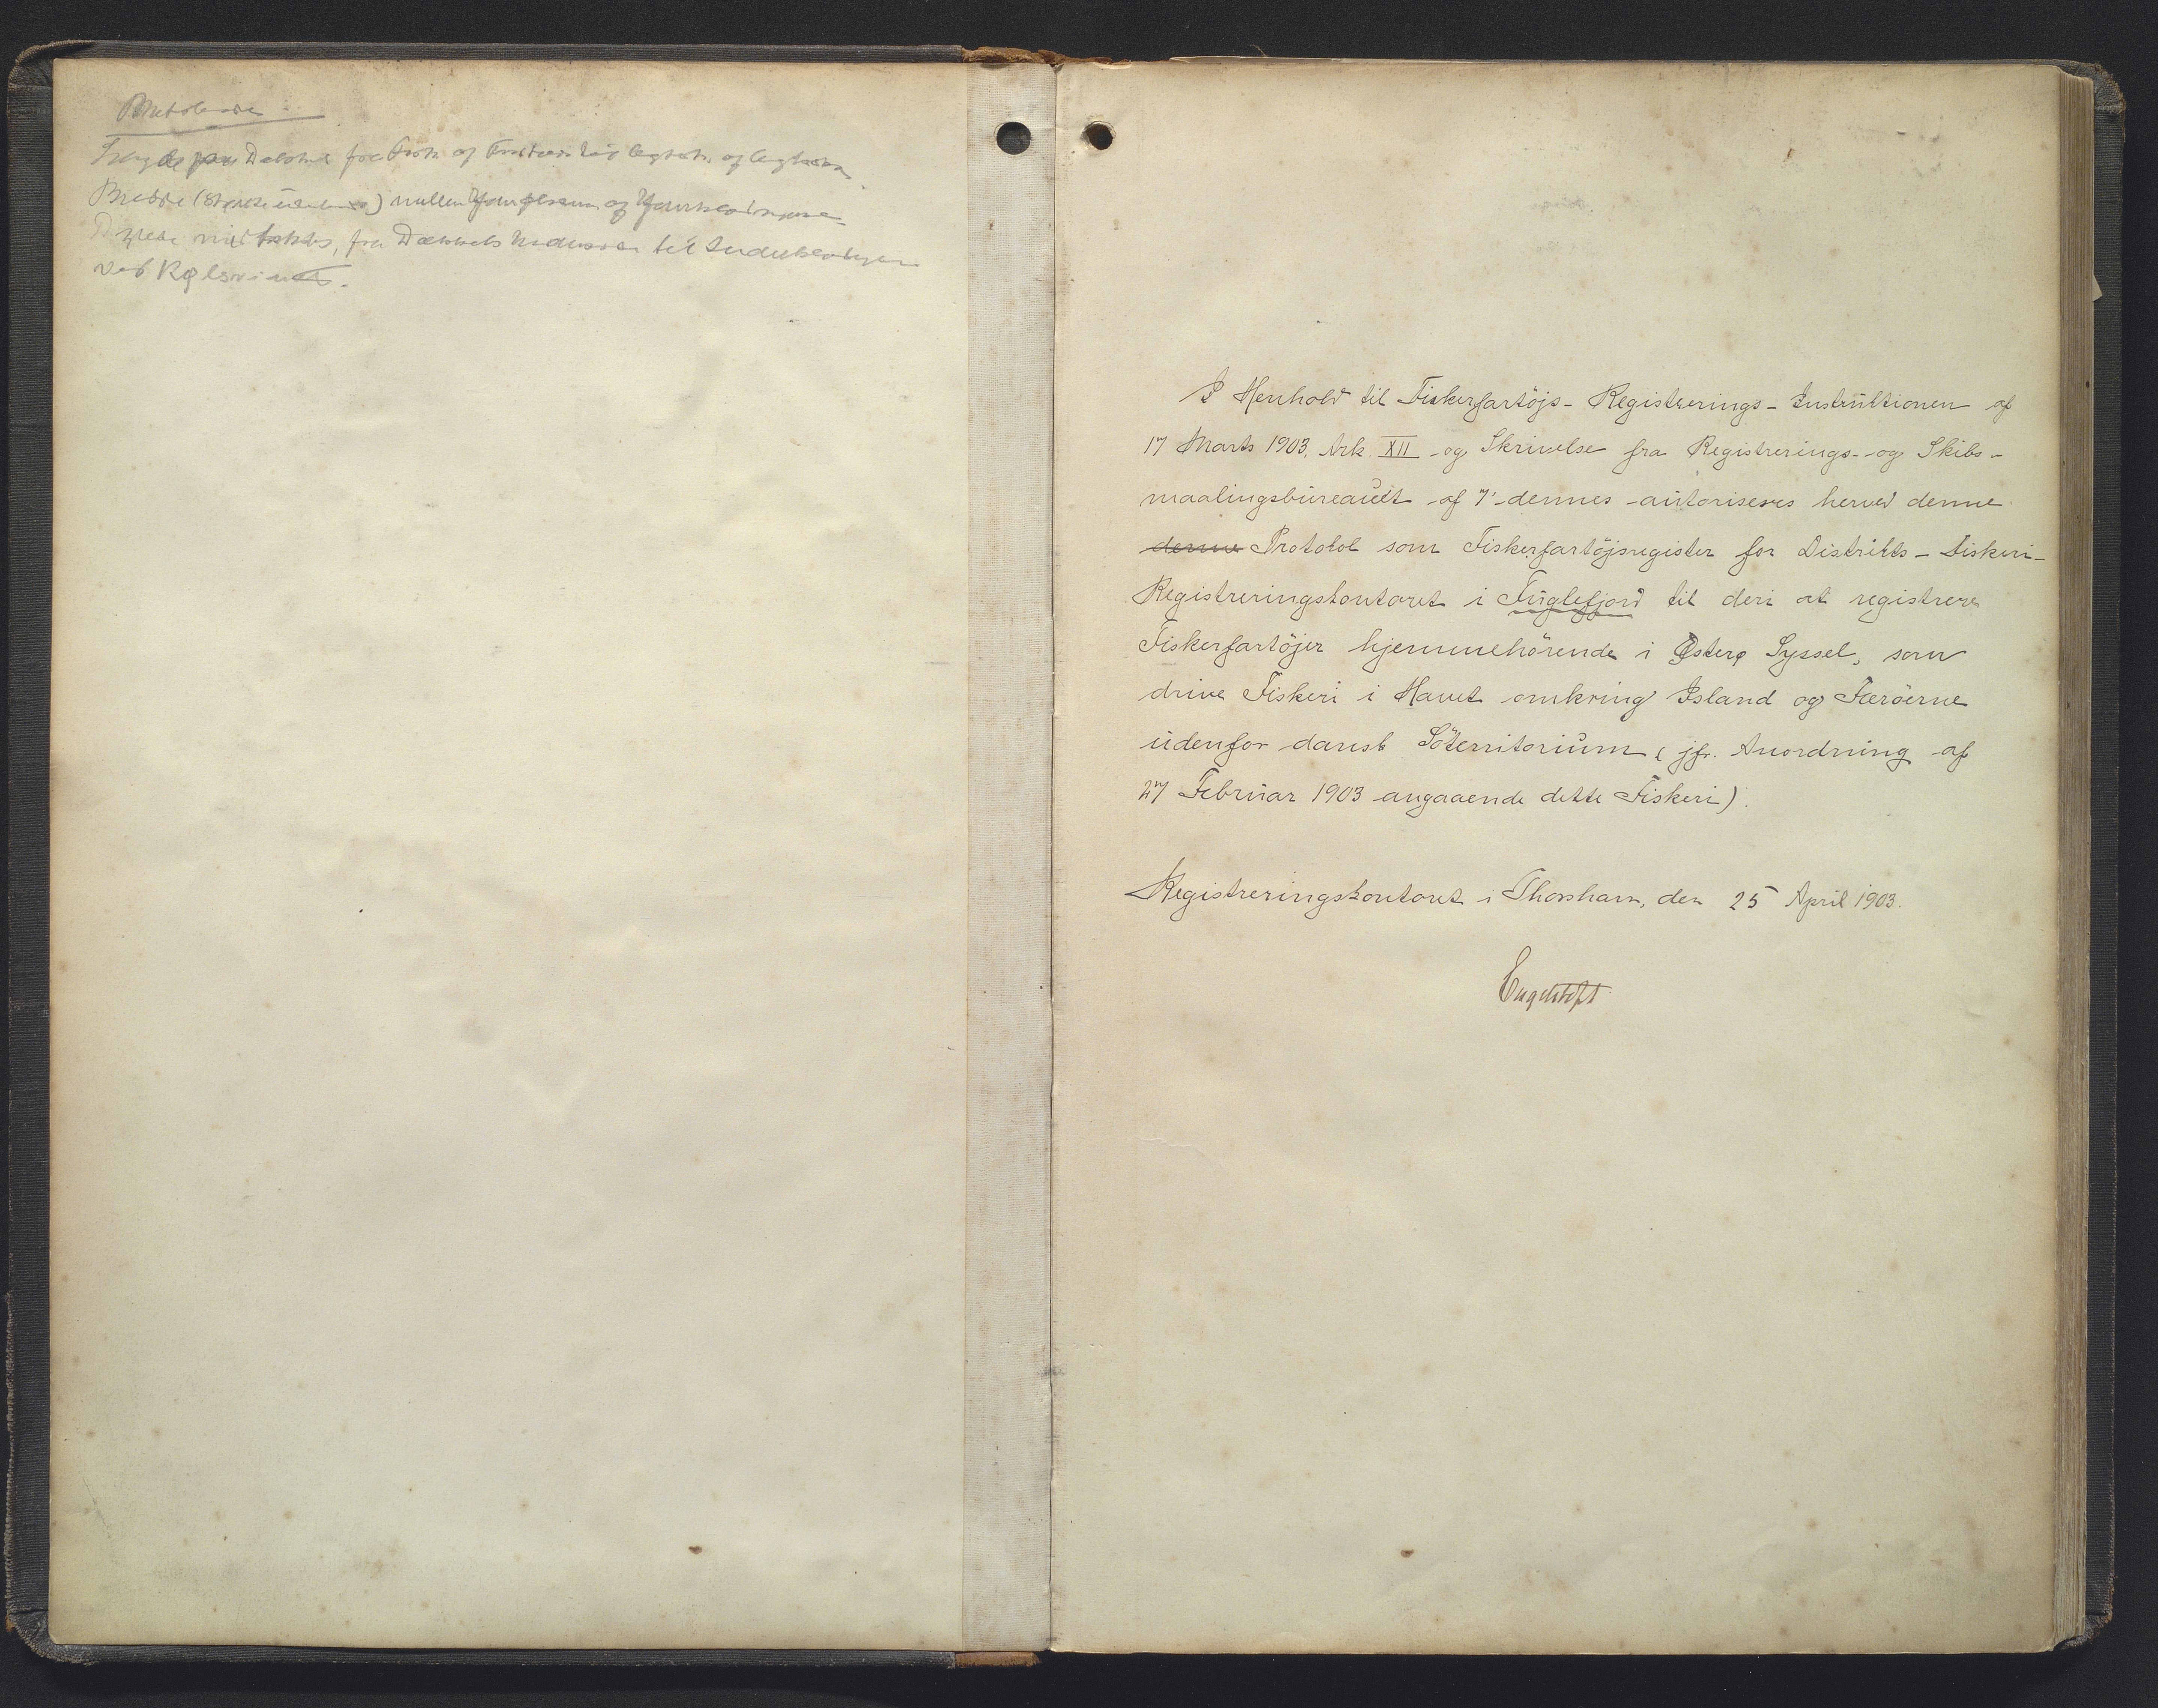 fra
Bredde
fra Dækkets Underkant til
ved Kølsvinet.
I Henhold til Fiskerfartöjs-Registrerings-Instruktionen af
17 Marts 1903, Ark. XII og Skrivelse fra Registrerings- og Skibs-
maalingsbureauet af 7' dennes autoriseres herved denne
denne Protokol som Fiskerfartöjsregister for Distrikts-Fiskeri-
Registreringskontoret i Fuglefjord til deri at registrere
Fiskerfartöjer hjemmehörende i Østerø Syssel, som
drive Fiskeri i Havet omkring Island og Færöerne
udenfor dansk Söterritorium (jfr. Anordning af
27 Februar 1903 angaaende dette Fiskeri).
Registreringskontoret i Thorshavn, den 25 April 1903.
Engelstoft